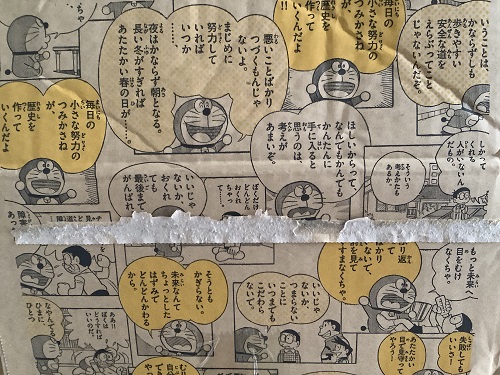 いうことは
かならずしも
歩きやすい
安全な道を
えらぶってこと
じゃないんだぞ。
毎日の
小さな努力の
つみかさねが
歴史を
作って
いくんだよ
悪いことばかり
つづくもんじゃ
ないよ。
まじめに
努力して
いれば
いつか
夜はかならず朝となる。
長い冬がすぎれば
あたたかい春の日が……
毎日の
小さな努力の
つみかさねが
歴史を
作って
いくんだよ
しかって
くれる
人がいない
んだもの。
そういう
考えかたも
あるか。
ほしいからって、
なんでもかんでも
かんたんに
手に入ると
思うのは、
考えが
あまいぞ。
いいじゃ
ないか、
おくれ
ても
最後まで
がんばれ
ぼくだけ
どんどん
おくれ
もっと未来へ
目をむけ
なくちゃ。
り返
かり
ないで、
を見て
すまなくちゃ。
いいじゃ
ないか。
つまらない
ことに
いつまでも
こだわら
ないで。
そうとも
かぎらない。
未来なんて
ちょっとした
はずみで
どんどんかわる
から。
ああ!!
ぼくは
どうすれば
いいのだ。
なやんでる
ひまに
ひとつ
失敗しても
いいさ!
あたたかい
目で見守って
やろう!